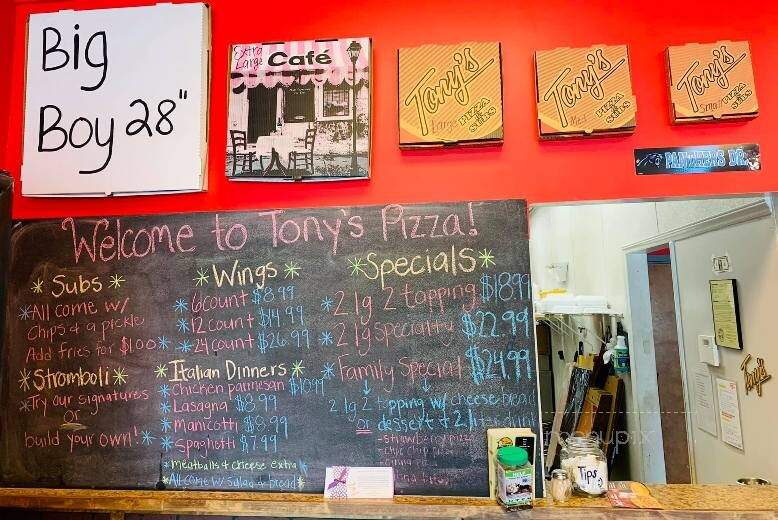 Big
Boy 28"
Extra
Large
Café
Tony's
Large PIZZA
& SUBS
Tony's
Med PIZZA
& SUBS
Tony's
Small PIZZA
& SUBS
PANTHERS DR.
Welcome to Tony's Pizza!
*Subs*
*All come w/
chips & a pickle
Add fries for $1.00*
*Stromboli*
*Try our signatures
or
build your own!*
*Wings*
*6 count $8.99
*12 count $14.99
*24 count $26.99
*Italian Dinners*
*Chicken parmesan $10.99
*Lasagna $8.99
*Manicotti $8.99
*Spaghetti $7.99
*Meatballs & cheese extra
*All come w/ salad & bread*
*Specials*
*2 lg 2 topping $18.99
*2 lg specialty $22.99
*Family Special $24.99
2 lg 2 topping w/ cheese bread
or dessert & 2 liter
- strawberry pizza
- choc chip pizza
Tony's
Tips